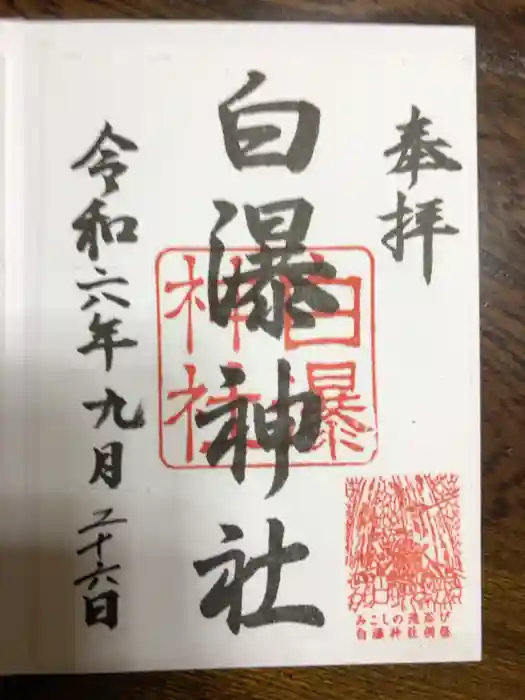 奉拝
白瀑神社
白瀑
神社
令和六年九月二十六日
みこしの滝浴び
白瀑神社例祭